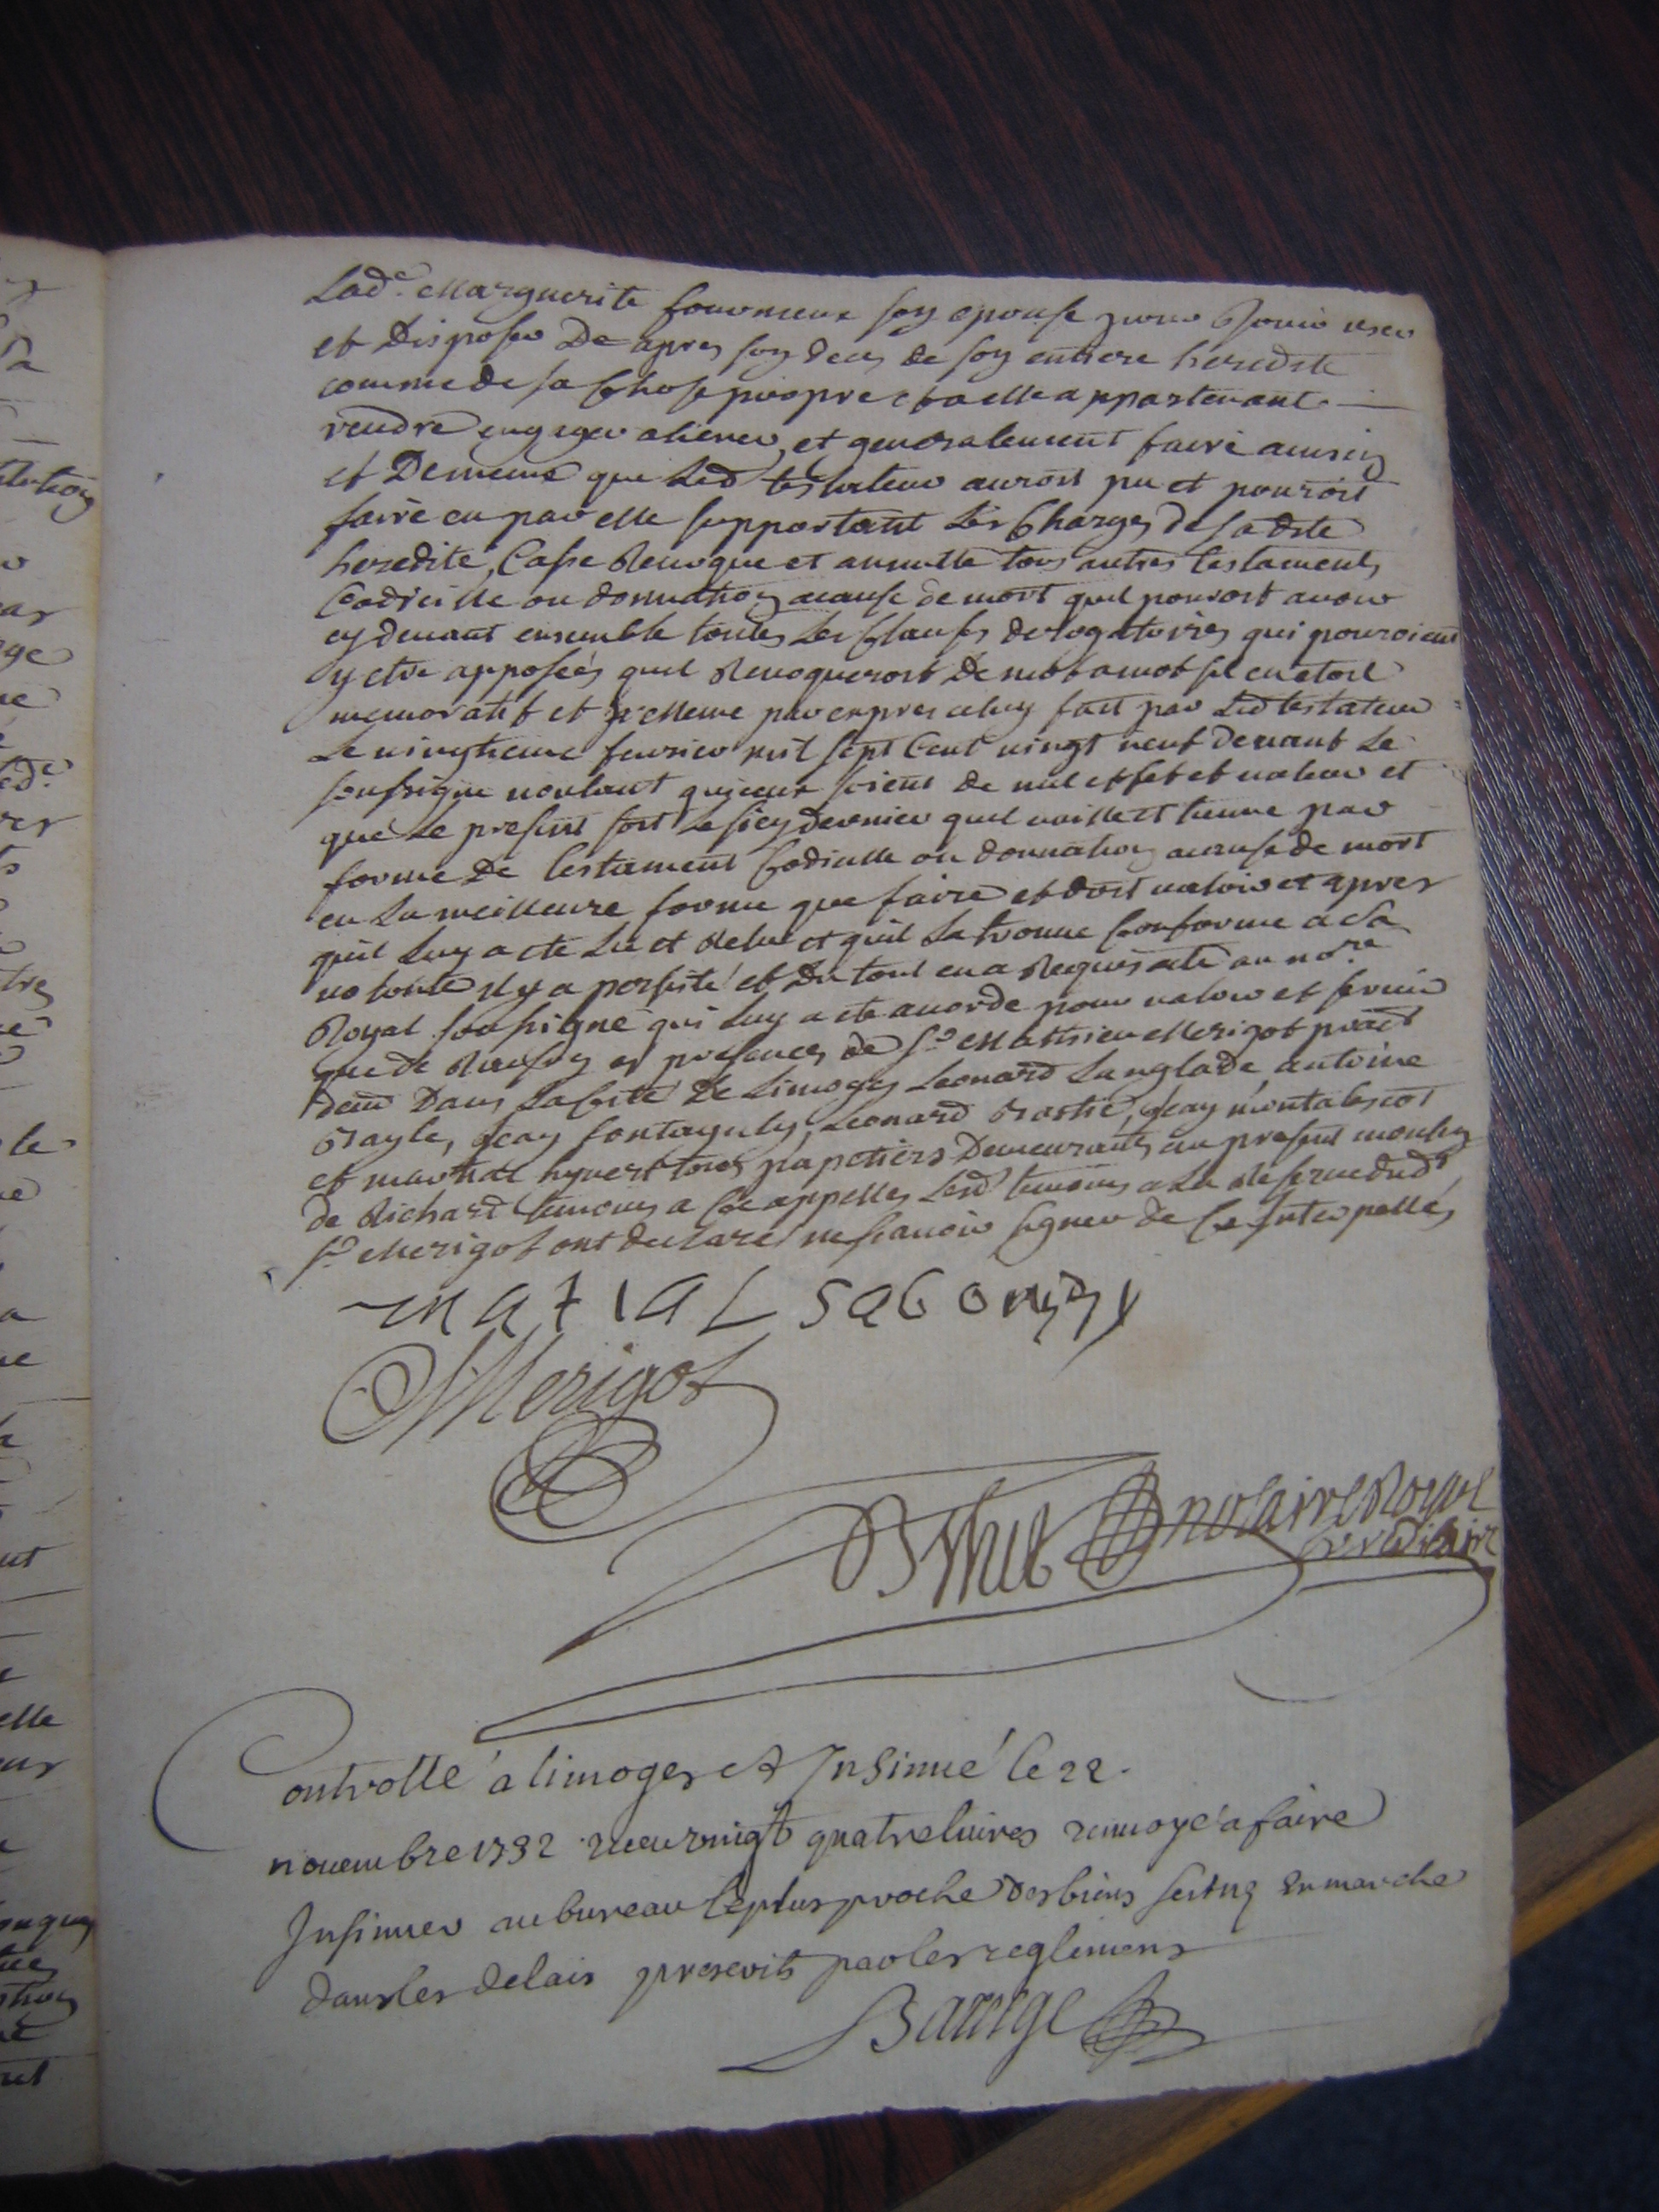 Lad.e Marguerite fourneux son epouse pour Jouir user
et Disposer De apres son deces de son entiere heredité
comme de sa Chose propre et a elle appartenant
vendre engager aliener, et generalement faire ainsin
et De meme que Led testateur auroit pu et pouroit
faire en par elle supportant Les Charges de sadite
heredité, Casse Revoque et annulle tous autres testaments
Codicille ou donnation acause de mort quil pouroit avoir
cy devant ensemble toutes Les Clauses derogatoires qui pouroient
y etre apposées quil Revoqueroit De mot a mot sil en etoit
memoratif et mesme par expres celuy fait par Led testateur
Le vingtieme fevrier mil sept Cent vingt neuf devant Le
soussigné voulant quiceux soient de nul effet et valeur et
que Le present soit Le sien dernier quil vaille et tienne par
forme De testament Codicille ou donnation acause de mort
en La meilleure forme que faire et doit valoir et apres
quil Luy a eté Lu et Relu et quil La trouvé Conforme a Sa
volonté il y a persisté et Du tout en a Requis acte au no.re
Royal soussigné qui Luy a eté acordé pour valoir et servir
que de Raison es presences de S.r Mathieu Merigot prat.
dem.t Dans La Cité De Limoges Leonard Langlade, antoine
Bayle, Jean fontanguly, Leonard Bastié, Jean montalescot
et martial hyvert tous papetiers Demeurants au present moulin
de Richard temoins a Ce appelles Lesd temoins a La Reserve dud
S.r Merigot ont declaré ne scavoir signer de Ce Interpellés
MATIAL
Merigot
notaire Royal
hereditaire
Controllé a limoges et Insinué le 22.
novembre 1732 recu vingt quatre livres renvoyé a faire
Insinuer au bureau le plus proche des biens en marche
dans les delais prescrits par les reglemens
Barrge